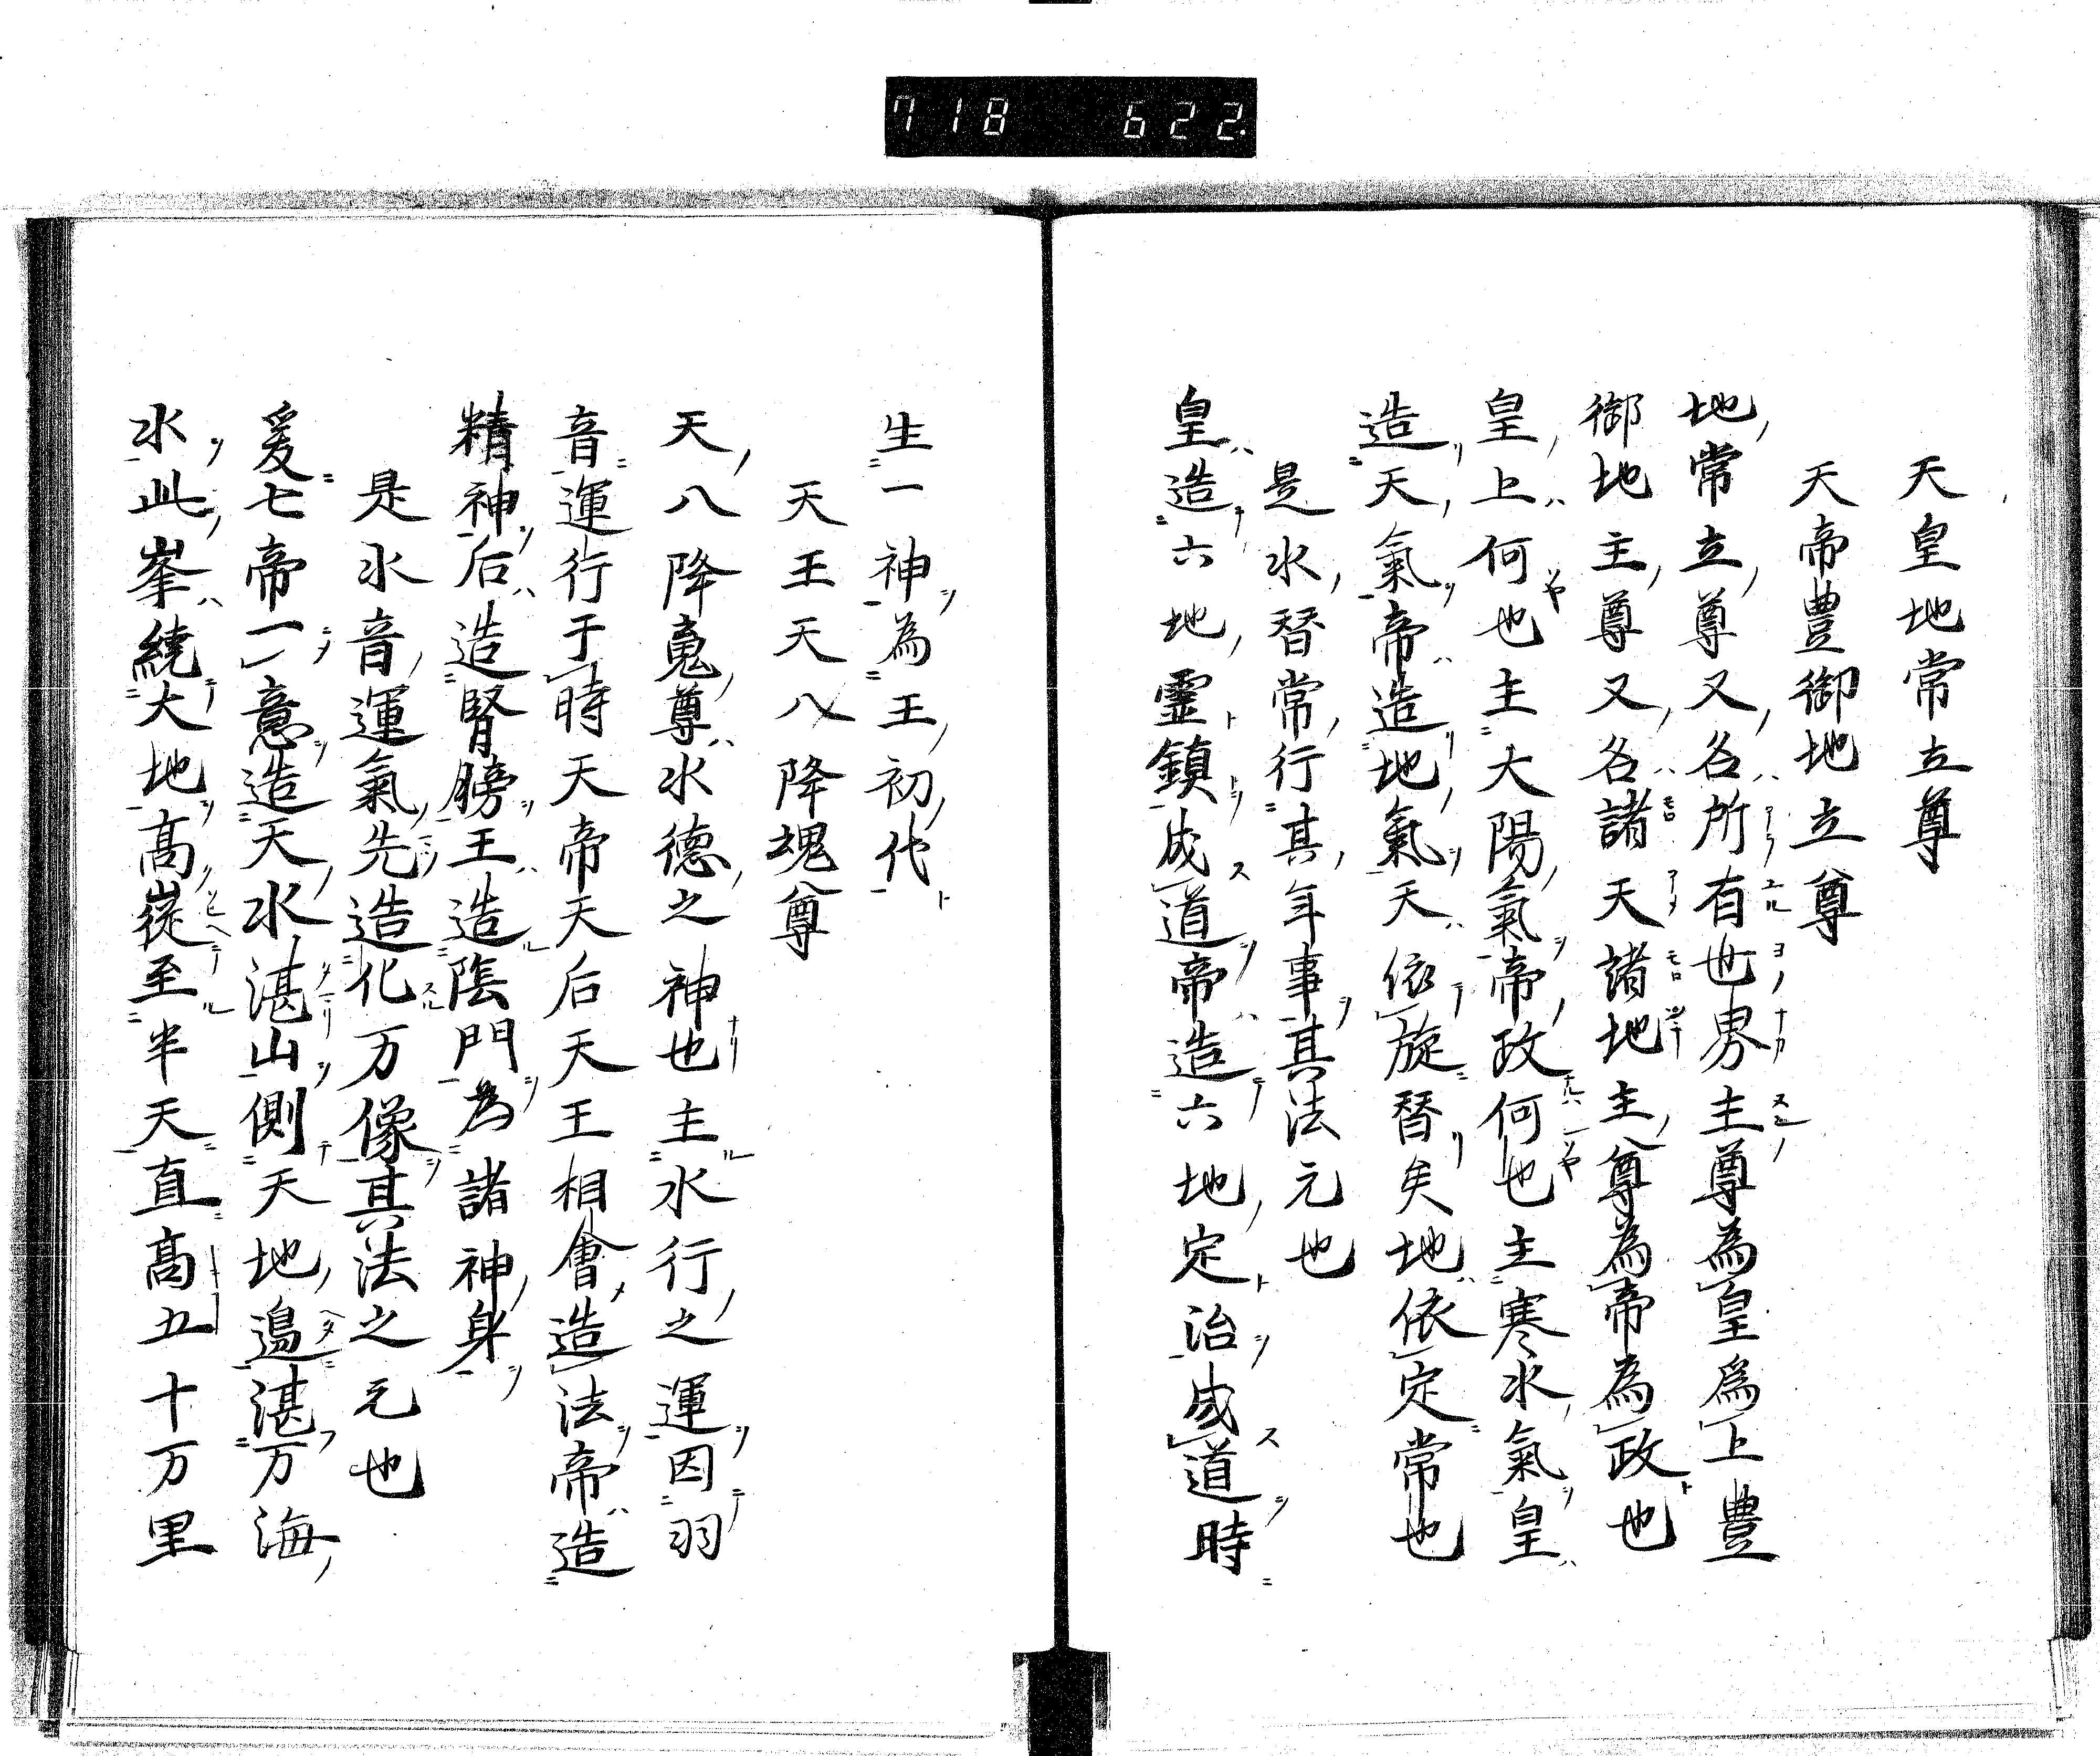 718 622.
天皇地常立尊
天帝豊御地立尊
地常立尊又名所有世界主尊為皇為上豊
御地主尊又名諸天諸地主尊為帝為政也
皇上何也主大陽氣帝政何也主寒水氣皇
造天氣帝造地氣天依旋替矣地依定常也
是水替常行其年事其法元也
皇造六地霊鎮成道帝造六地定治成道時
生一神為王初代
天王天八降魂尊
天八降魂尊水德之神也主水行之運因羽
音運行于時天帝天后天王相會造法帝造
精神后造腎膀王造陰門為諸神身
是水音運氣先造化万像其法之元也
爰七帝一意造天水湛山側天地邉湛万海
水此峯繞大地高嵸至半天直高五十万里